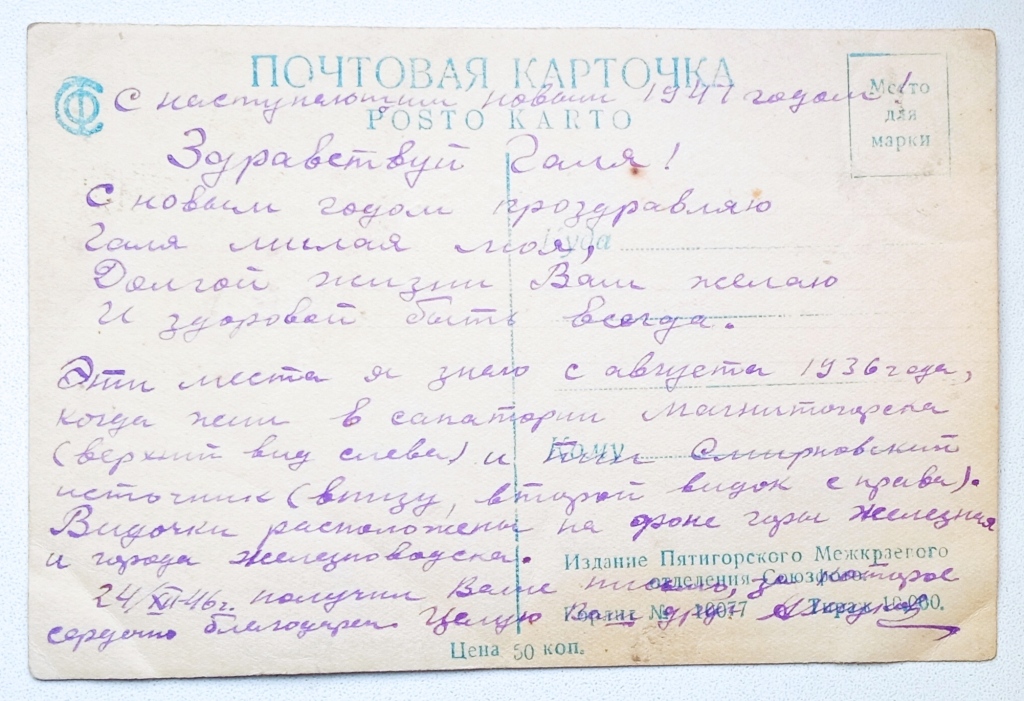 ПОЧТОВАЯ КАРТОЧКА
С наступающим новым 1947 годом!
POSTO KARTO
Место
для
марки
Здравствуй Галя!
С новым годом проздравляю
Галя милая моя,
Куда
Долгой жизни Вам желаю
И здоровой быть всегда.
Эти места я знаю с августа 1936 года,
когда жил в санатории Магнитогорска
(верхний вид слева) и пил Смирновский
Кому
источник (внизу, второй видок справа).
Видочки расположены на фоне горы Железная
и города Железноводска.
Издание Пятигорского Межкраевого
отделения Союзфото.
24/XII-46г. получил Ваше письмо, за которое
сердечно благодарен. Целую Ваш друг
Горлит № 10077 Тираж 10.000.
Цена 50 коп.